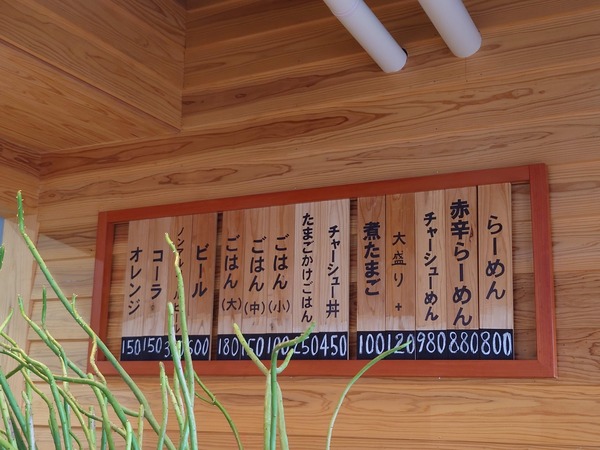 らーめん 800
赤辛らーめん 880
チャーシューめん 980
大盛り + 120
煮たまご 100
チャーシュー丼 450
たまごかけごはん 250
ごはん(小) 100
ごはん(中) 150
ごはん(大) 180
ビール 600
コーラ 150
オレンジ 150